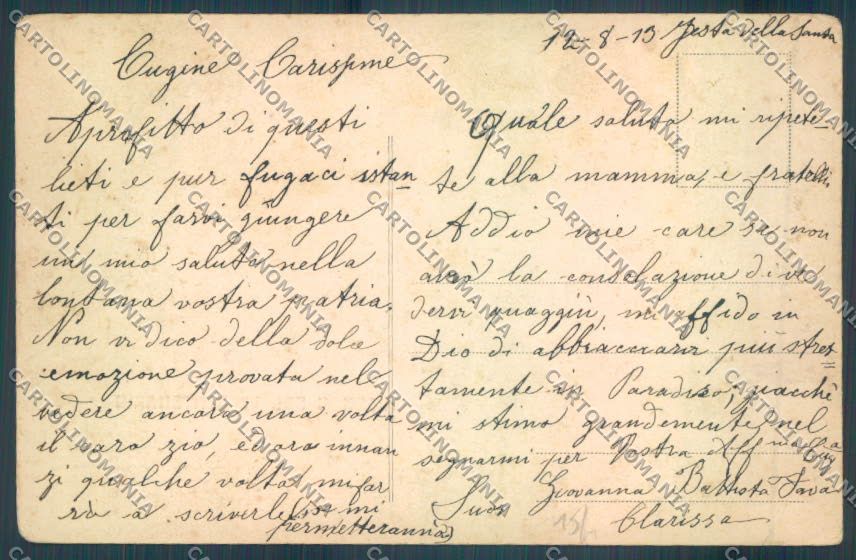 12-8-13 Festa della Santa
Cugine Carissime
Aprofitto di questi
lieti e pur fugaci istan
ti per farvi giungere
un mio saluto nella
lontana vostra patria.
Non vi dico della dolce
emozione provata nel
vedere ancora una volta
il caro zio, ed ora innan
zi qualche volta mi fa
rò a scriverle (se mi
permetteranno)
Quale saluto mi ripete-
te alla mamma, e fratelli,
Addio mie care se non
avrò la consolazione di ve
dervi quaggiù, mi affido in
Dio di abbracciarvi più stret=
tamente in Paradiso, giacchè
mi stimo grandemente nel
segnarmi per Vostra Aff.ma Cug
Suor Giovanna Battista
Clarissa
15/
CARTOLINOMANIA